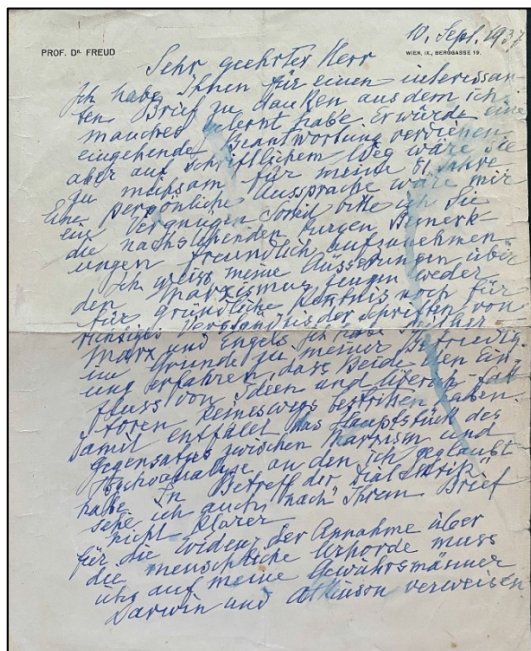 10. Sept. 1937
PROF. DR. FREUD
WIEN, IX., BERGGASSE 19.
Sehr geehrter Herr
Ich habe Ihnen für einen interessan
ten Brief zu danken aus dem ich
manches gelernt habe. Er würde eine
eingehende Beantwortung verdienen
aber auf schriftlichem Weg wäre sie
zu mühsam für meine 81 Jahre
Eine persönliche Aussprache wäre mir
ein Vergnügen Soweit bitte ich Sie
die nachstehenden kurzen Bemerk-
ungen freundlich aufzunehmen
Ich weiss meine Äusserungen über
den Marxismus zeugen weder
für gründliche Kentnis noch für
richtiges Verständnis der Schriften von
Marx und Engels. Ich habe
im Grunde zu meiner Befriedig
ung erfahren, dass beide den Ein
fluss von Ideen und Überich-Fak
toren keineswegs bestriten haben.
Damit entfällt das Hauptstück des
Gegensatzes zwischen Marxism und
Psychoanalyse an den ich geglaubt
habe. In Betreff der Dialektik
sehe ich auch nach Ihrem Brief
nicht klarer
für die Evidenz der Annahme über
die menschliche Urhorde muss
ich auf meine Gewährsmänner
Darwin und Atkinson verweisen